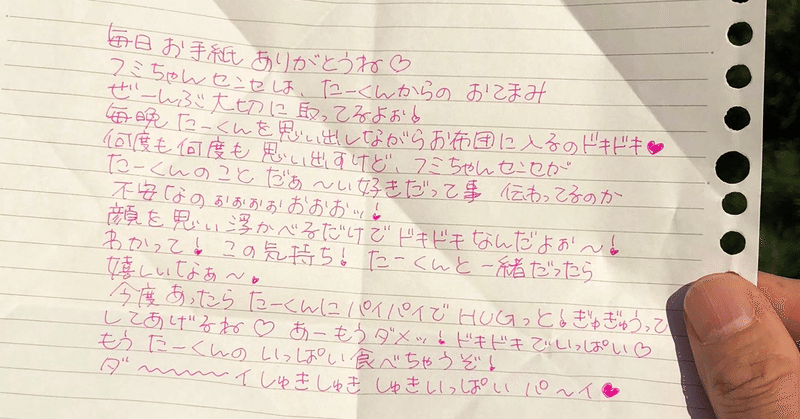 毎日 お手紙 ありがとうね♡
フミちゃんセンセは、たーくんからの おてまみ
ぜーんぶ大切に取ってるよぉ!
毎晩 たーくんを思い出しながらお布団に入るのドキドキ♥
何度も何度も 思い出すけど、フミちゃんセンセが
たーくんのこと だぁ〜い好きだって事 伝わってるのか
不安なのぉぉぉぉおおおッ!
顔を思い浮かべるだけで ドキドキ なんだよぉ〜!
わかって! この気持ち! たーくんと一緒だったら
嬉しいなぁ〜!
今度 あったら たーくんに パイパイで HUGっと!ぎゅぎゅうって
してあげるね♡ あーもうダメッ! ドキドキでいっぱい♡
もう たーくんの いっぱい食べちゃうぞ!
ダ〜〜〜〜イしゅきしゅき しゅきいっぱい パ〜イ♥